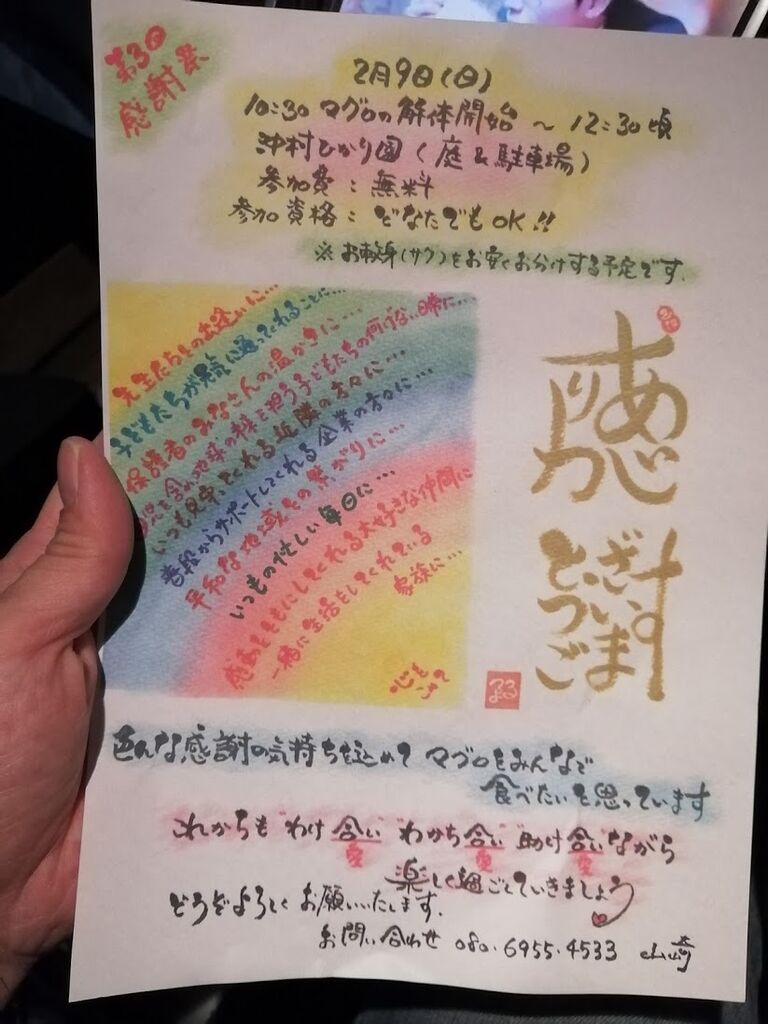 第3回
感謝祭
2月9日(日)
10:30 マグロの解体開始 ~ 12:30頃
沖村ひかり園(庭&駐車場)
参加費:無料
参加資格:どなたでもOK!!
※お刺身(サク)をお安くお分けする予定です.
先生たちとの出逢いに…
子どもたちが元気に通ってくれることに…
保護者のみなさんの温かさに…
地球の様を担う子どもたちの何げない日常に…
いつも見守ってくれる近隣の方々に…
普段からサポートしてくれる企業の方々に…
平和な地域との繋がりに…
いつもの忙しい毎日に…
感動をともにしてくれる大好きな仲間に
一緒に生活をしてくれている
家族に…
心をこめて
ありがとうございます
色んな感謝の気持ちを込めて マグロをみんなで
食べたいと思っています
これからも"わけ合い""わかち合い"助け合いながら
愛 愛 愛
楽しく過ごしていきましょう
どうぞよろしくお願いいたします.
お問い合わせ 080.6955.4533 山崎